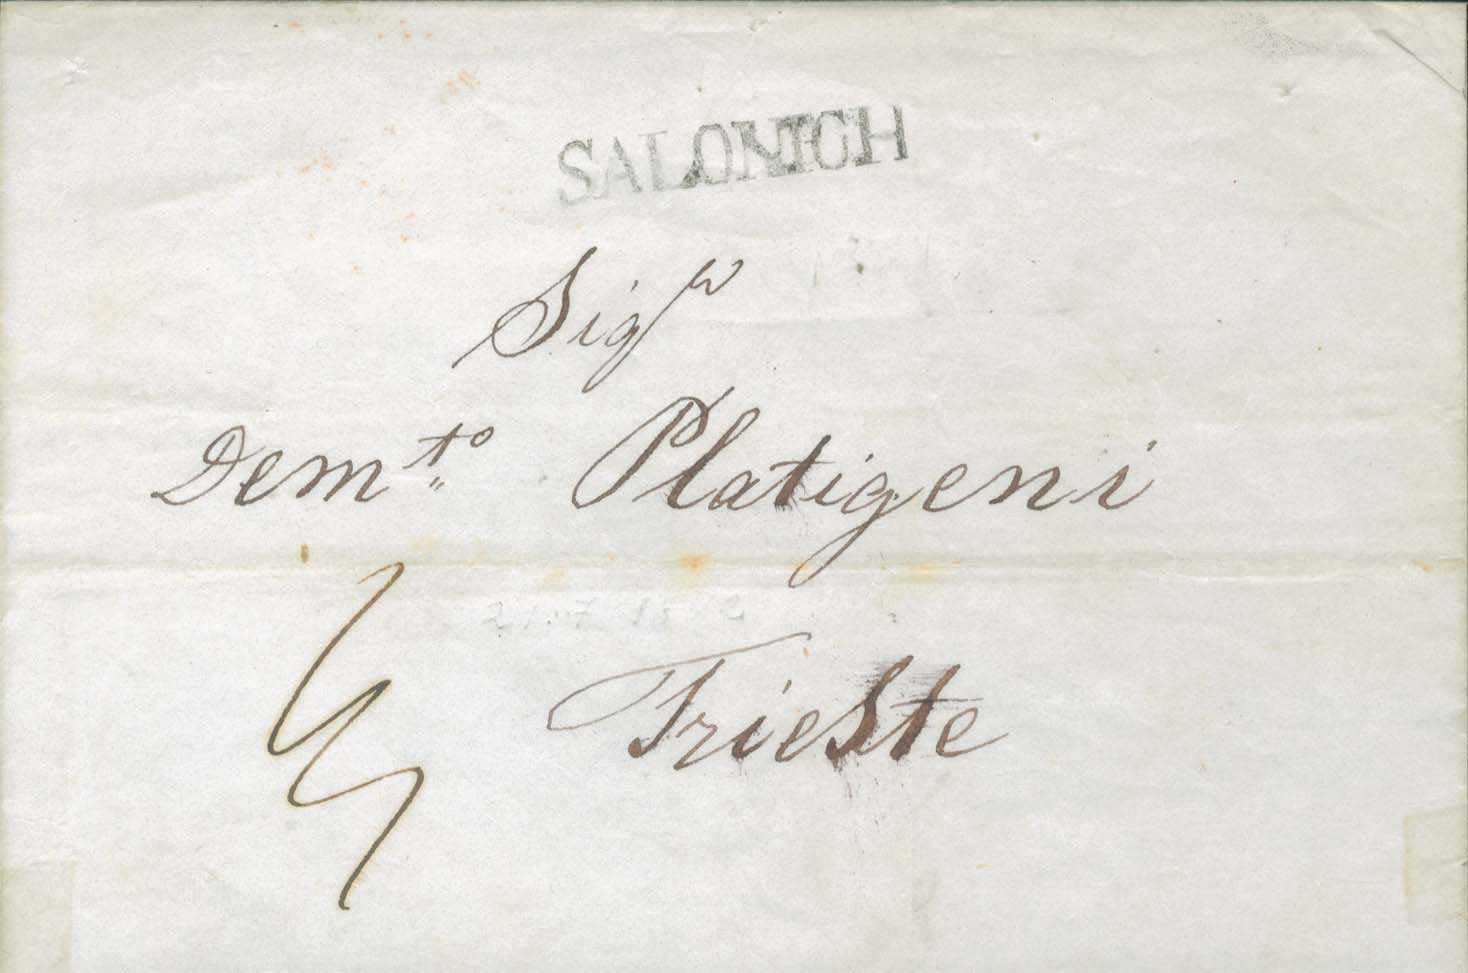 SALONICH
Sigr
Demto Platigeni
Trieste